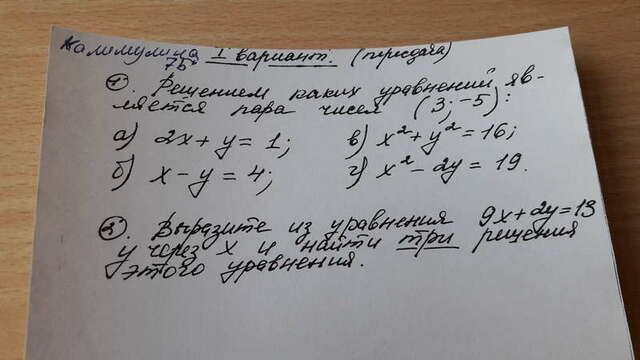 1 вариант. (пересдача)
①. Решением каких уравнений яв-
ляется пара чисел (3;-5):
а) 2x + y = 1; в) x² + y² = 16;
б) x - y = 4; г) x² - 2y = 19.
③. Выразите из уравнения 9x + 2y = 13
y через x и найти три решения
этого уравнения.